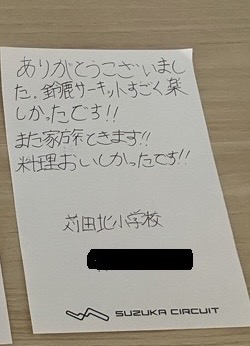 ありがとうございまし
た。鈴鹿サーキットすごく楽
しかったです!!
また家族ときます!!
料理おいしかったです!!
苅田北小学校
SUZUKA CIRCUIT